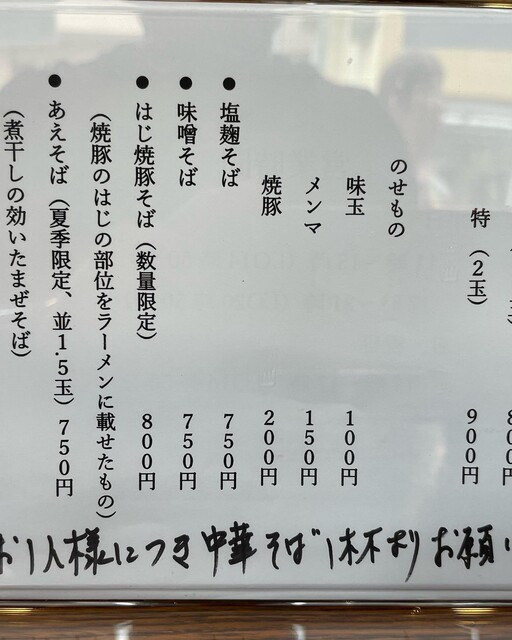 特（2玉）　900円
のせもの
味玉　100円
メンマ　150円
焼豚　200円
●塩麹そば　750円
●味噌そば　750円
●はじ焼豚そば（数量限定）　800円
（焼豚のはじの部位をラーメンに載せたもの）
●あえそば（夏季限定、並1.5玉）750円
（煮干しの効いたまぜそば）
お1人様につき中華そば1杯よりお願い